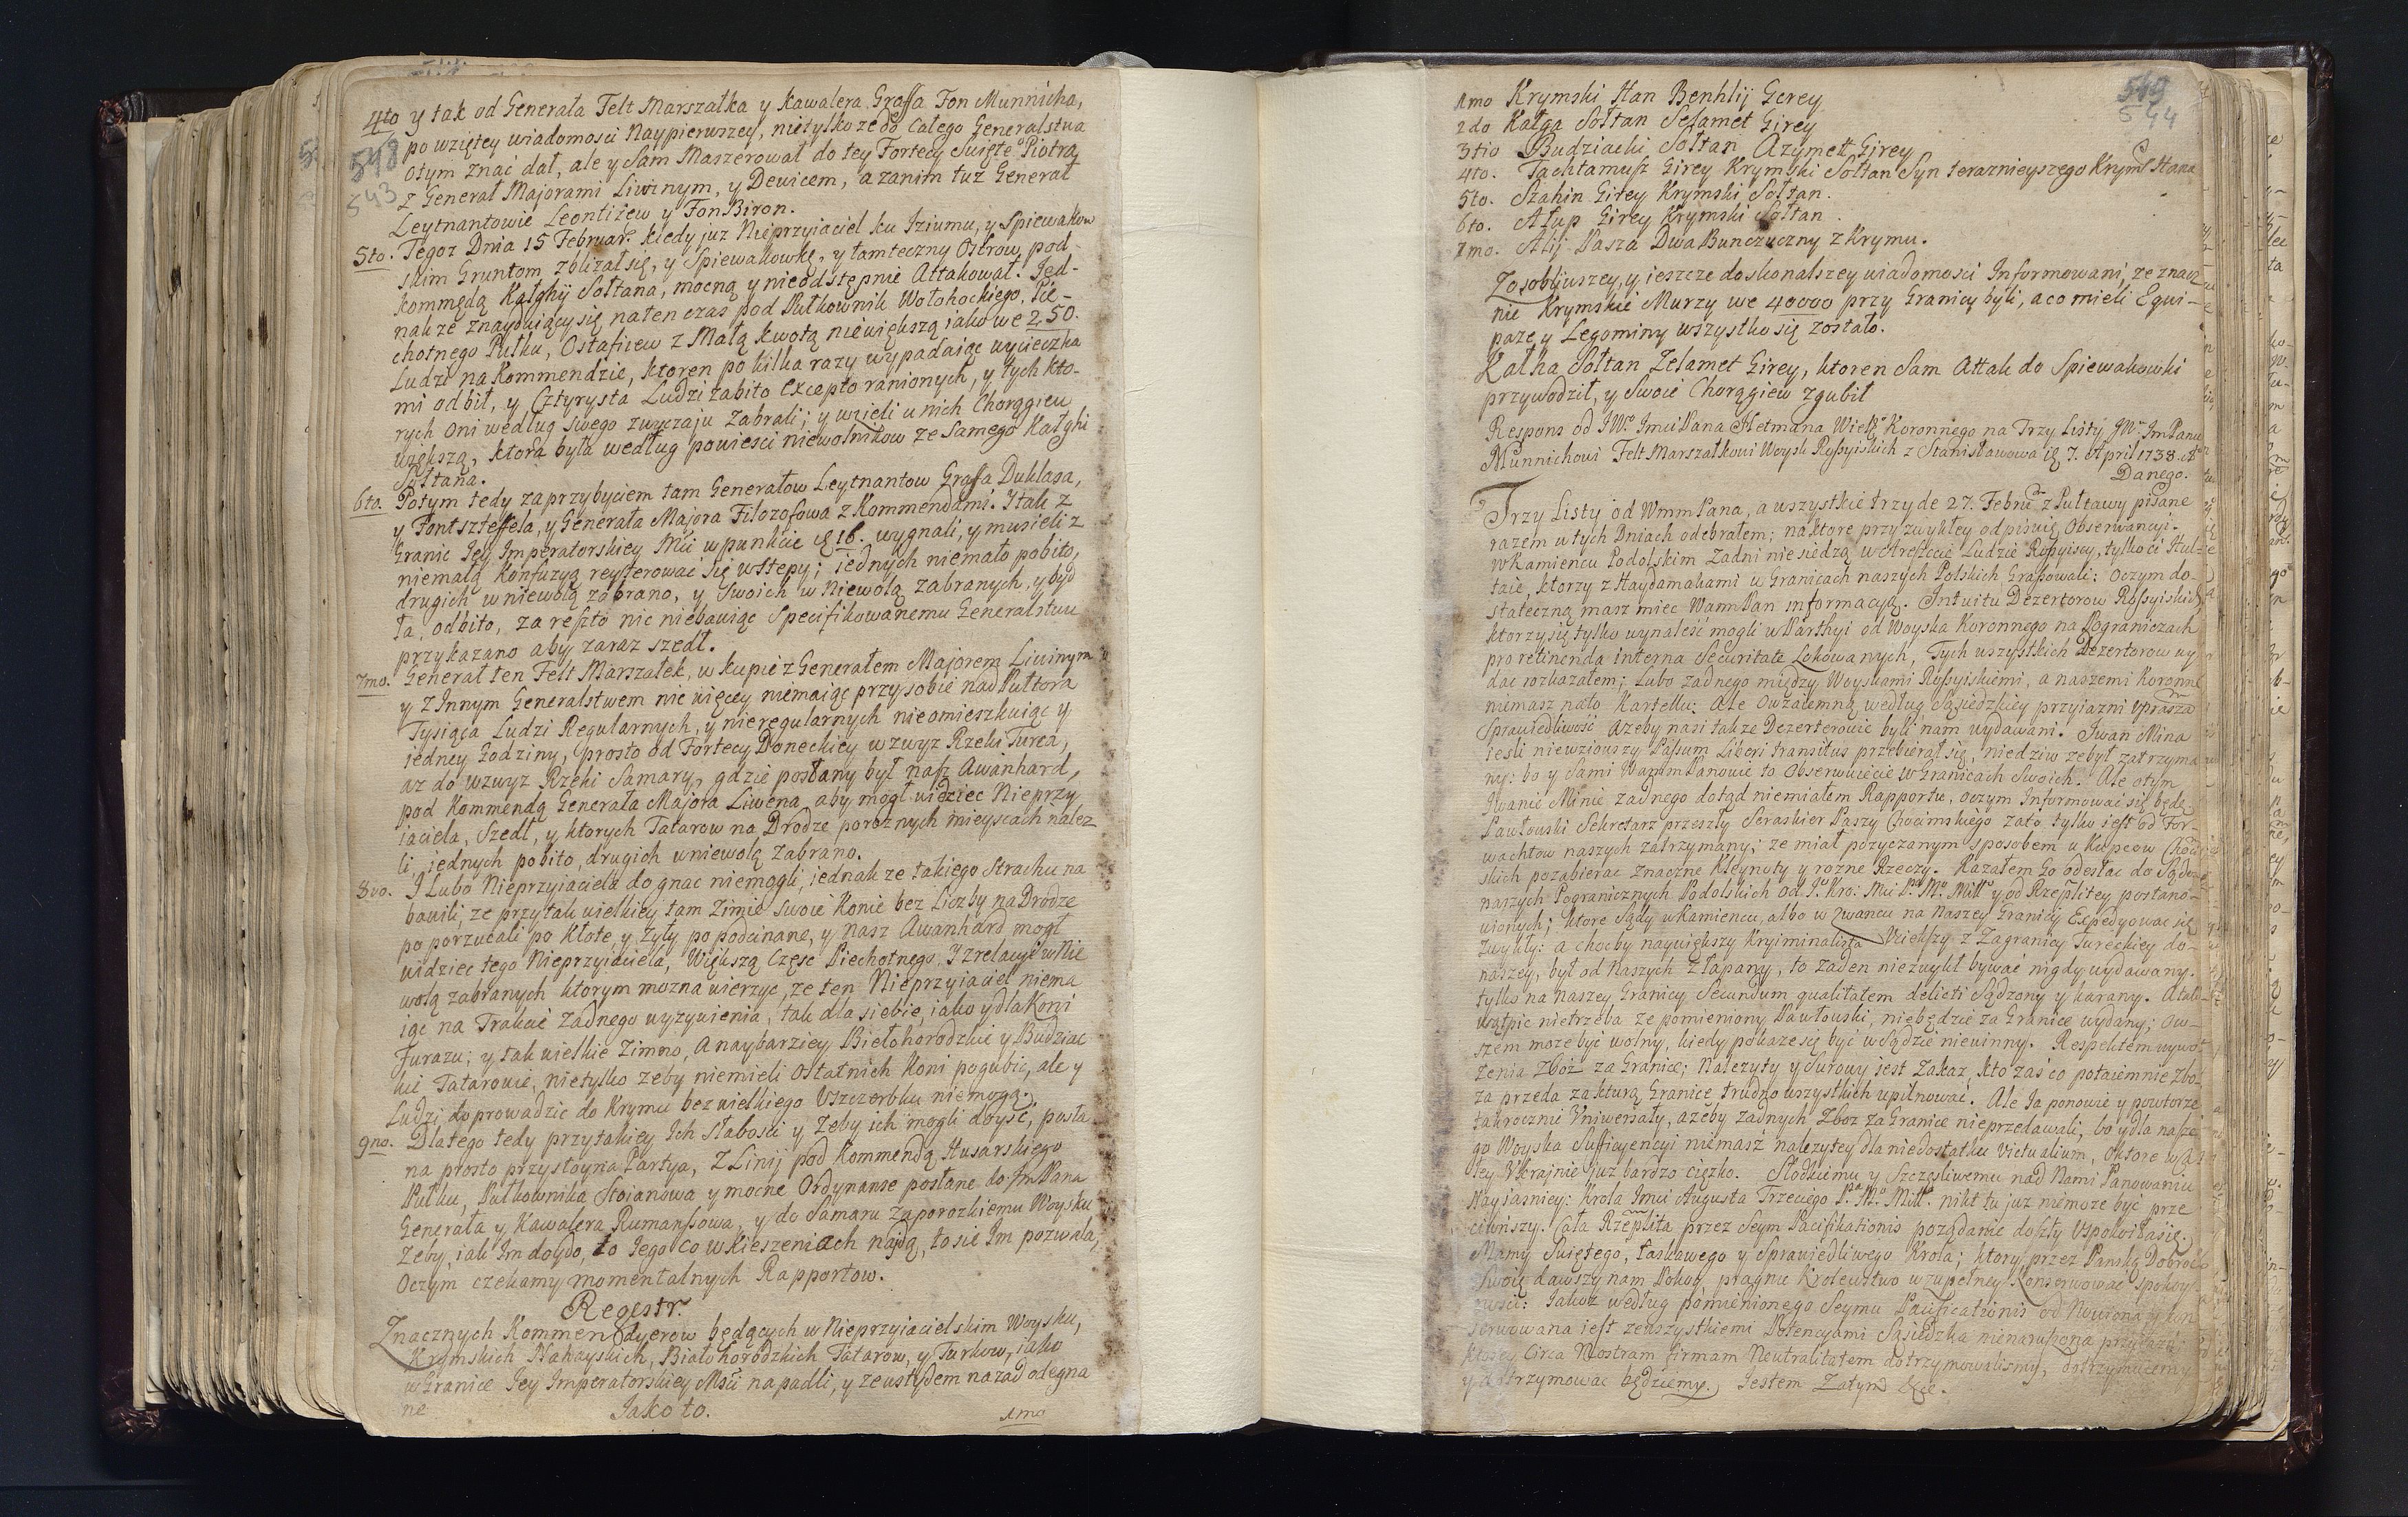 548
543
4to y tak od Generała Felt Marszałka y Kawalera Graffa Fon Munnicha,
po wziętey wiadomosci Naypierwszey, nietylko ze do Całego Generalstwa
otym znac dał, ale y Sam Maszerował do tey Fortecy Swięte° Piotra
z Generał Majorami Liwinym, y Dewicem, a zanim tuz Generał
Leytnantowie Leontiżew y Fon Biron.
5to. Tegoz Dnia 15 Februar. kiedy juz Nieprzyiaciel ku Iziumu, y Spiewakow
skim Gruntom zblizał się, y Spiewakowkę, y tamteczny Ostrow, pod
kommędą Kałghij Sołtana, mocną y nieodstępnie Attakował. Jed-
nakze znayduiący się naten czas pod Pułkownik Wołohockiego, Pie-
chotnego Pułku, Ostafiiew z Małą kwotą niewiększą iako we 250.
Ludzi na Kommendzie, ktoren po kilka razy wypadaiąc wycieczka
mi odbił, y Cztyrysta Ludzi zabito Excepto ranionych, y tych kto-
rych oni według swego zwyczaju Zabrali; y wzieli u nich Chorągiew
większą, ktora była według powiesci niewolnikow ze Samego Kałghi
Sołtana.
6to. Potym tedy zaprzybyciem tam Generałow Leytnantow Graffa Duklasa,
y Fontszteffela, y Generała Majora Filozofowa z Kommendami. Itak z
Granic Jey Imperatorskiey Mci w punkcie 16. wygnali, y musieli z
niemałą Konfuzyą reyterowac się wstepy; iednych niemało pobito,
drugich w niewolą zabrano, y Swoich w Niewolą zabranych, y byd
ła, odbito, za resztą nic niebawiąc Specifikowanemu Generalstwu
przykazano aby zaraz szedł.
7mo. Generał ten Felt Marszałek, w kupie z Generałem Majorem Liwinym
y z Innym Generalstwem nic więcey niemaiąc przy sobie nad Pułtora
Tysiąca Ludzi Regularnych, y nieregularnych nieomieszkuiąc y
jedney Godziny, prosto od Fortecy Doneckiey wzwyz Rzeki Turca,
az do wzwyz Rzeki Samary, gdzie posłany był nasz Awanhard,
pod Kommendą Generała Majora Liwena, aby mogł widziec Nieprzy
iaciela, Szedł, y ktorych Tatarow na Drodze poroznych mieyscach nalez
li, jednych pobito, drugich wniewolą zabrano.
8vo. I Lubo Nieprzyiaciela dognac niemogli, jednak ze takiego Strachu na
bawili, ze przy tak wielkiey tam Zimie swoie Konie bez Liczby na Drodze
po porzucali po Kłote, y Zyły po podcinane, y nasz Awanhard mogł
widziec tego Nieprzyiaciela, Większą Częsc Piechotnego. Y z relacyi w Nie
wolą zabranych ktorym mozna wierzyc, ze ten Nieprzyiaciel niema
iąc na Trakcie Zadnego wyzywienia, tak dla siebie, iako y dla Koni
Furazu; y tak wielkie Zimno, a naybarziey Biełohorodzkie y Budziac
kie Tatarowie, nietylko zeby niemieli Ostatnich Koni pogubic, ale y
Ludzi doprowadzic do Krymu bez wielkiego Uszczerbku niemogą.
9no. Dlatego tedy przytakiey Ich słabosci y Zeby ich mogli doysc, posła
na prosto przystoyna Partya, Z Linij pod Kommendą Husarskiego
Pułku, Pułkownika Stoianowa y mocne Ordynanse posłane do Jm Pana
Generała y Kawalera Rumanssowa, y do Samaru Zaporozkiemu Woysku
Zeby, iak Im doydo, to Jego co w Kieszeniach naydą, to sie Im pozwala,
Oczym czekamy momentalnych Rapportow.
Regestr.
Znacznych Kommendyerow będących w Nieprzyiacielskim Woysku,
Krymskich Nahayskich, Białohorodzkich Tatarow, y Turkow, iako
w Granice Jey Imperatorskiey Msci napadli, y ze wstydem nazad odegna
ne Jako to. 1mo
549
544
1mo Krymski Han Benhlij Gerey
2do Kałga Sołtan Selamet Girey
3tio Budziacki Sołtan Azymett Girey
4to. Tachtamusz Girey Krymski Sołtan Syn teraznieyszego Krym Hana
5to. Szahin Girey Krymski Sołtan.
6to. Ałup Girey Krymski Sołtan.
7mo. Alij Pasza Dwa Bunczuczny z Krymu.
Zosobliwszey, y ieszcze doskonalszey wiadomosci Informowani, ze znacz
nie Krymskie Murzy we 40000 przy Granicy byli, a co mieli Equi-
paze y Legominy wszystko się zostało.
Kałha Sołtan Zelamet Girey, ktoren Sam Attak do Spiewakowki
przywodził, y Swoie Chorągiew zgubił
Respons od JW° Jmci Pana Hetmana Wielk° Koronnego na Trzy Listy JW° Jm Panu
Munnichowi Felt Marszałkowi Woysk Rossyiskich z Stanisławowa 7. April 1738.
Danego.
Trzy Listy od WmmPana, a wszystkie trzy de 27. Febru z Pułtawy pisane
razem w tych Dniach odebrałem; naktore przy zwykłey odpisuię Obserwancyi.
W Kamiencu Podolskim Zadni niesiedzą w Areszcie Ludzie Rossyiscy, tylko ci Hul-
taie, ktorzy z Haydamakami w Granicach naszych Polskich Grassowali: Oczym do-
stateczną masz miec WammPan informacyą. Intuitu Dezertorow Rossyiskich
ktorzy się tylko wynalesć mogli w Parthyi od Woyska Koronnego na Pograniczach
pro retinenda interna Securitate Lokowanych, Tych wszystkich Dezertorow wy
dac rozkazałem; Lubo zadnego między Woyskami Rossyiskiemi, a naszemi Koronne
niemasz nato Kartellu: Ale Owzaiemną według Sąsiedzkiey przyiazni uprasza
Sprawiedliwosc azeby nasi takze Dezerterowie byli nam wydawani. Iwan Mina
iesli niewziowszy Passum Liberi transitus przebierał się, niedziw zebył zatrzyma
ny: bo y Sami WammPanowie to Obserwuiecie w Granicach Swoich. Ale otym
Iwanie Minie zadnego dotąd niemiałem Rapportu, oczym Informowac się będę.
Pawłowski Sekretarz przeszły Seraskier Paszy Chocimskiego zato tylko iest od For-
wachtow naszych zatrzymany; ze miał pozyczanym sposobem u Kupcow
skich pozabierac znaczne Kleynoty y rozne Rzeczy. Kazałem Go odesłac do Sądow
naszych Pogranicznych Podolskich od J° Kro: Mci P° M° Mill° y od Rzeplitey postano-
wionych; ktore Sądy w Kamiencu, albo w Zwancu na Naszey Granicy Expedyowac się
zwykły: a chocby naywiększy Kryiminalista Uciekszy z Zagranicy Tureckiey do-
naszey, był od Naszych złapany, to zaden niezwykł bywac nigdy wydawany.
tylko na naszey Granicy Secundum qualitatem delicti Sądzony y karany. A tak
wątpic nietrzeba ze pomieniony Pawłowski, niebędzie za Granice wydany; Ow-
szem moze być wolny, kiedy pokaze się być w Sądzie niewinny. Respektem wywo-
zenia Zboż za Granice; Nalezyty y Surowy iest Zakaz, kto zaś co potaiemnie Zbo-
za przeda za ktorą Granice trudno wszystkich upilnowac. Ale Ia ponowie y powtorze
takrocznie Uniwersały, azeby zadnych Zboz za Granice nieprzedawali, bo y dla nasze
go Woyska Sufficyencyi niemasz nalezytey dla niedostatku Victualium, Oktore w
tey Ukrainie juz bardzo cięzko. Słodkiemu y Szczęsliwemu nad Nami Panowaniu
Nayiasniey: Krola Jmci Augusta Trzeciego P° M° Mill° nikt tu juz niemoze być prze
ciwnszy. Cała Rzeplita przez Seym Pacifikationis poządanie doszły Uspokoiła się.
Mamy Swiętego, Łaskawego y Sprawiedliwego Krola; ktory przez Panską Dobroć
Swoię dawszy nam Pokoy, pragnie Krolewstwo w zupełney Konserwowac spokoy
nosci: Jakoz według pomienionego Seymu Pacificationis od Nowiona y kon
serwowana iest ze wszystkiemi Potencyami Sąsiedzka nienaruszona przyiazn
ktorey Circa Nostram firmam Neutralitatem dotrzymowalismy, dotrzymuiemy
y dotrzymowac będziemy. Jestem Zatym &c.